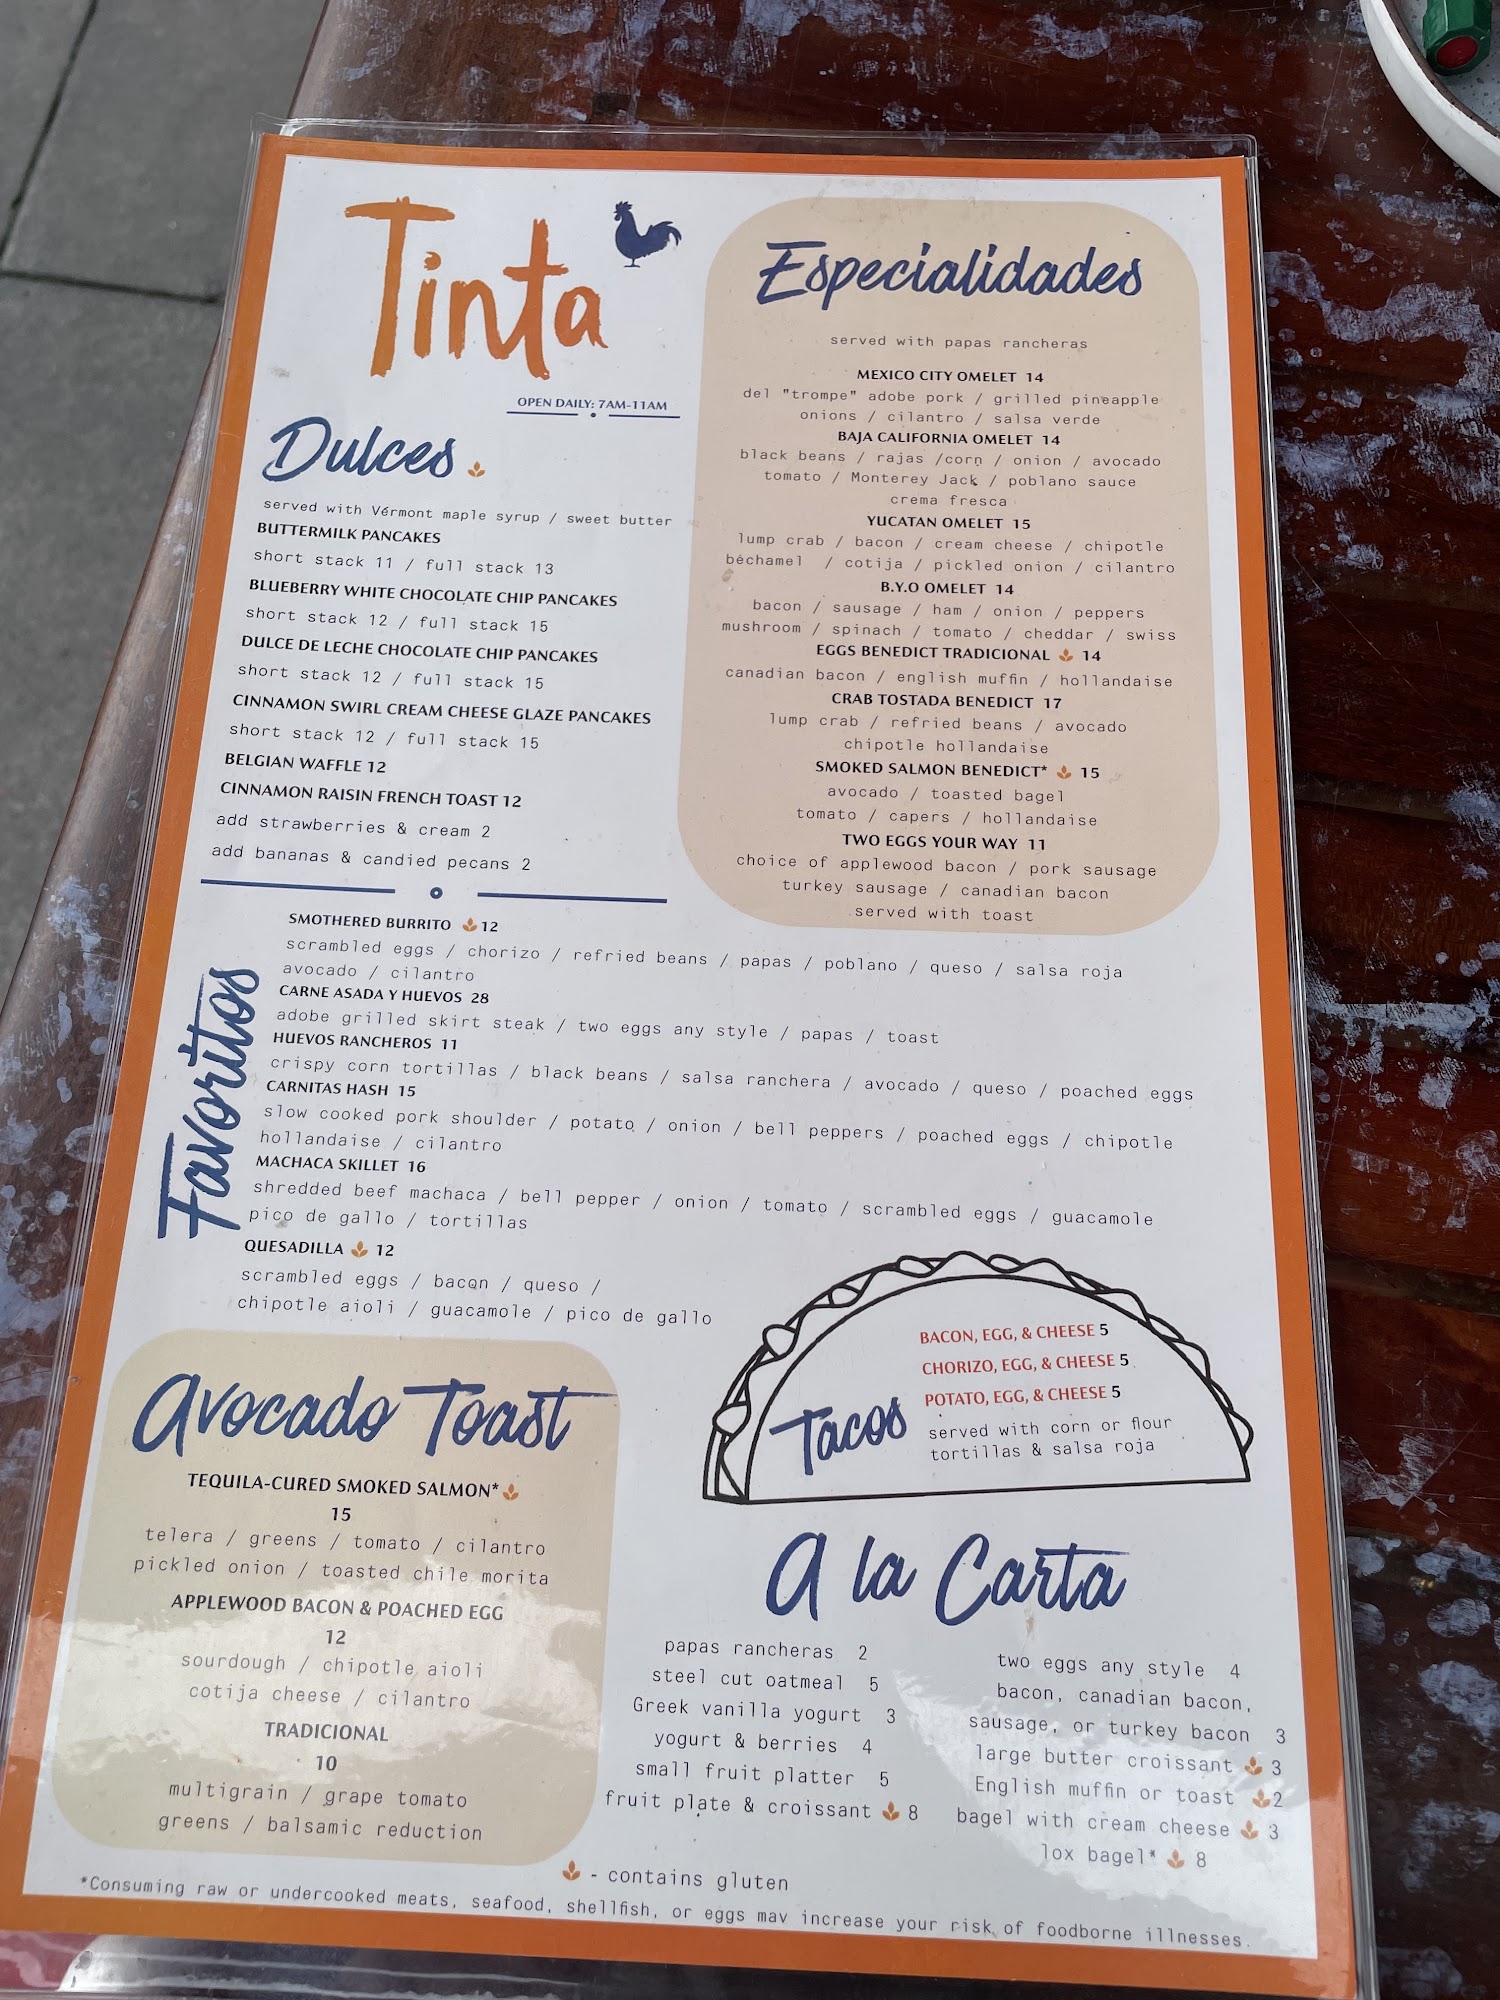 Tinta
OPEN DAILY: 7AM-11AM
Dulces
served with Vermont maple syrup / sweet butter
BUTTERMILK PANCAKES
short stack 11 / full stack 13
BLUEBERRY WHITE CHOCOLATE CHIP PANCAKES
short stack 12 / full stack 15
DULCE DE LECHE CHOCOLATE CHIP PANCAKES
short stack 12 / full stack 15
CINNAMON SWIRL CREAM CHEESE GLAZE PANCAKES
short stack 12 / full stack 15
BELGIAN WAFFLE 12
CINNAMON RAISIN FRENCH TOAST 12
add strawberries & cream 2
add bananas & candied pecans 2
Especialidades
served with papas rancheras
MEXICO CITY OMELET 14
del "trompe" adobe pork / grilled pineapple
onions / cilantro / salsa verde
BAJA CALIFORNIA OMELET 14
black beans / rajas /corn / onion / avocado
tomato / Monterey Jack / poblano sauce
crema fresca
YUCATAN OMELET 15
lump crab / bacon / cream cheese / chipotle
béchamel / cotija / pickled onion / cilantro
B.Y.O OMELET 14
bacon / sausage / ham / onion / peppers
mushroom / spinach / tomato / cheddar / swiss
EGGS BENEDICT TRADICIONAL 14
canadian bacon / english muffin / hollandaise
CRAB TOSTADA BENEDICT 17
lump crab / refried beans / avocado
chipotle hollandaise
SMOKED SALMON BENEDICT* 15
avocado / toasted bagel
tomato / capers / hollandaise
TWO EGGS YOUR WAY 11
choice of applewood bacon / pork sausage
turkey sausage / canadian bacon
served with toast
Favoritos
SMOTHERED BURRITO 12
scrambled eggs / chorizo / refried beans / papas / poblano / queso / salsa roja
avocado / cilantro
CARNE ASADA Y HUEVOS 28
adobe grilled skirt steak / two eggs any style / papas / toast
HUEVOS RANCHEROS 11
crispy corn tortillas / black beans / salsa ranchera / avocado / queso / poached eggs
CARNITAS HASH 15
slow cooked pork shoulder / potato / onion / bell peppers / poached eggs / chipotle
hollandaise / cilantro
MACHACA SKILLET 16
shredded beef machaca / bell pepper / onion / tomato / scrambled eggs / guacamole
pico de gallo / tortillas
QUESADILLA 12
scrambled eggs / bacon / queso /
chipotle aioli / guacamole / pico de gallo
Avocado Toast
TEQUILA-CURED SMOKED SALMON*
15
telera / greens / tomato / cilantro
pickled onion / toasted chile morita
APPLEWOOD BACON & POACHED EGG
12
sourdough / chipotle aioli
cotija cheese / cilantro
TRADICIONAL
10
multigrain / grape tomato
greens / balsamic reduction
Tacos
BACON, EGG, & CHEESE 5
CHORIZO, EGG, & CHEESE 5
POTATO, EGG, & CHEESE 5
served with corn or flour
tortillas & salsa roja
A la Carta
papas rancheras 2
steel cut oatmeal 5
Greek vanilla yogurt 3
yogurt & berries 4
small fruit platter 5
fruit plate & croissant 8
two eggs any style 4
bacon, canadian bacon,
sausage, or turkey bacon 3
large butter croissant 3
English muffin or toast 2
bagel with cream cheese 3
lox bagel* 8
- contains gluten
*Consuming raw or undercooked meats, seafood, shellfish, or eggs may increase your risk of foodborne illnesses.